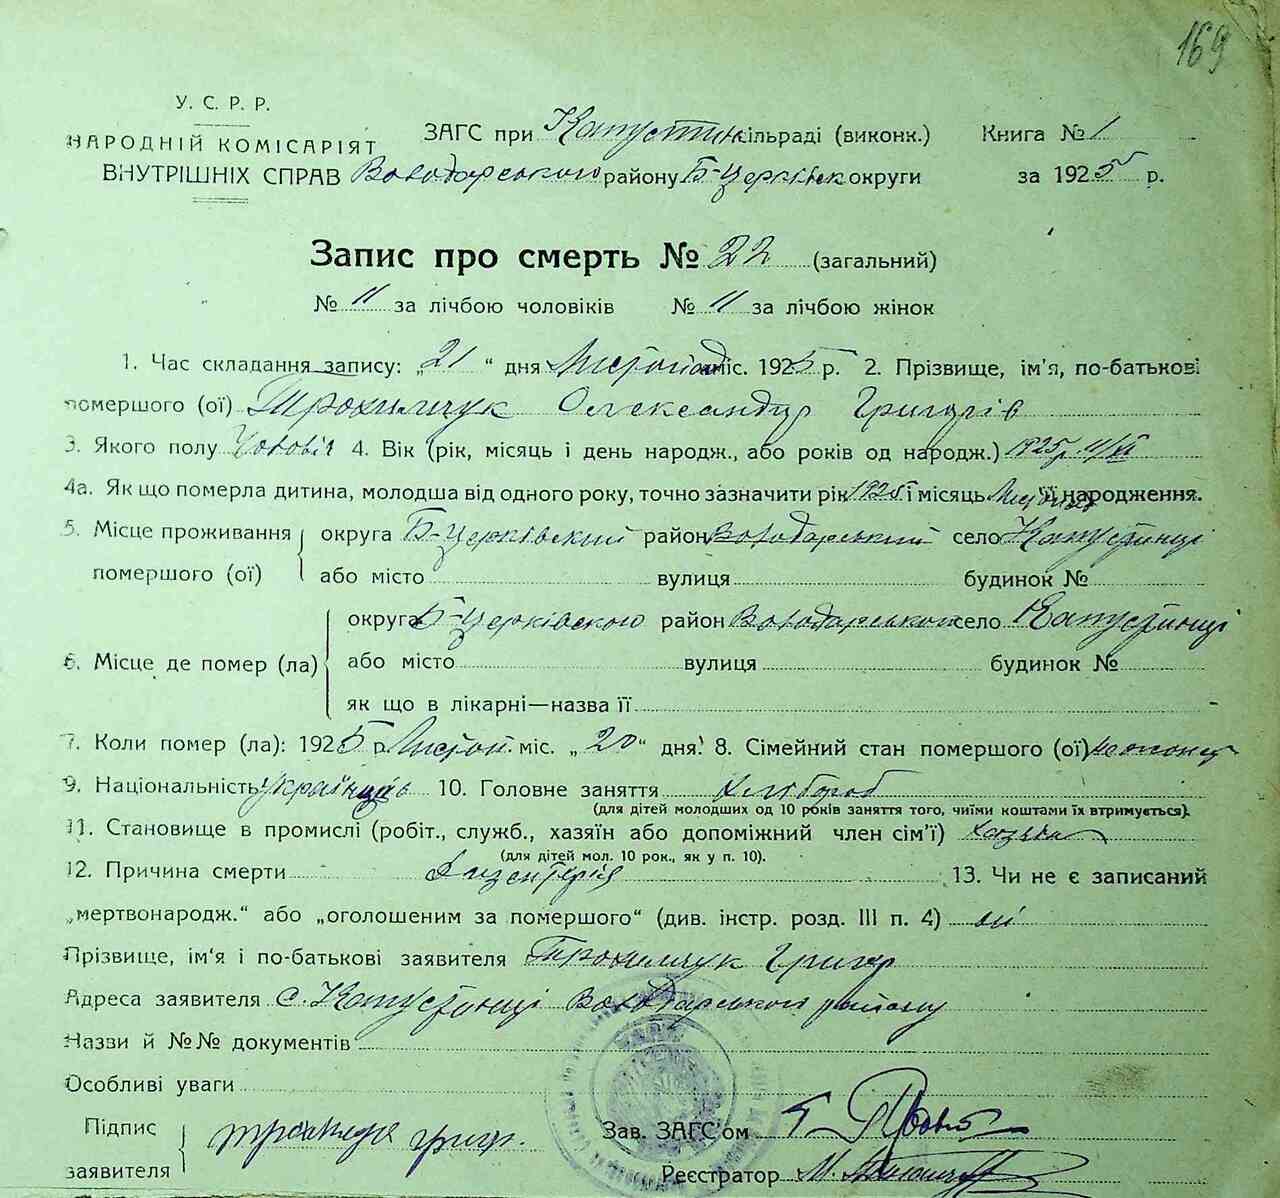 169
У. С. Р. Р.
НАРОДНІЙ КОМІСАРІЯТ
ВНУТРІШНІХ СПРАВ
ЗАГС при Капустин сільраді (виконк.) Книга № 1
Володарського району Б-Церківськ округи за 1925 р.
Запис про смерть № 22 (загальний)
№ 11 за лічбою чоловіків № 11 за лічбою жінок
1. Час складання запису: „21“ дня Листопад міс. 1925 р. 2. Прізвище, ім'я, по-батькові
помершого (ої) Трохимчук Олександр Григорів
3. Якого полу Чоловіч 4. Вік (рік, місяць і день народж., або років од народж.) 1925р 11/XI
4а. Як що померла дитина, молодша від одного року, точно зазначити рік 1925 і місяць її народження.
5. Місце проживання округа Б-Церківский район Володарський село Капустинці
помершого (ої) або місто вулиця будинок №
округа Б-Церківского район Володарського село Капустинці
6. Місце де помер (ла) або місто вулиця будинок №
як що в лікарні—назва її
7. Коли помер (ла): 1925 р. Листоп. міс. „20“ дня. 8. Сімейний стан помершого (ої)
9. Національність українець 10. Головне заняття хлібороб
(для дітей молодших од 10 років заняття того, чиїми коштами їх втримується).
11. Становище в промислі (робіт., служб., хазяїн або допоміжний член сім'ї)
(для дітей мол. 10 рок., як у п. 10).
12. Причина смерти Дизентерія 13. Чи не є записаний
„мертвонародж.“ або „оголошеним за помершого“ (див. інстр. розд. III п. 4) ні
Прізвище, ім'я і по-батькові заявителя Трохимчук Григор
Адреса заявителя с. Капустинці Володарського району
Назви й №№ документів
Особливі уваги
Підпис
заявителя
Зав. ЗАГС'ом
Реєстратор